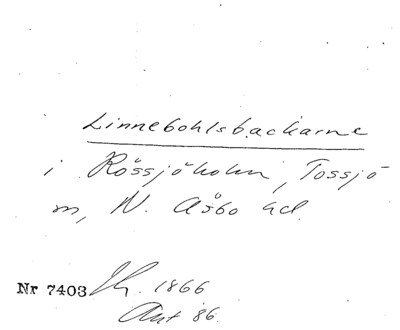 Linnebohlsbackarne
i Rössjöholm, Tossjö
m, N. Åsbo hd.
Nr 7403 Sk. 1866
Ant 86.